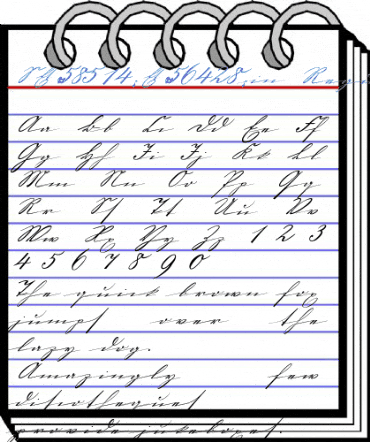 Aa Bb Cc Dd Ee Ff
Gg Hh Ii Jj Kk Ll
Mm Nn Oo Pp Qq
Rr Ss Tt Uu Vv
Ww Xx Yy Zz 1 2 3
4 5 6 7 8 9 0
The quick brown fox
jumps over the
lazy dog.
Amazingly few
discotheques
provide jukeboxes.